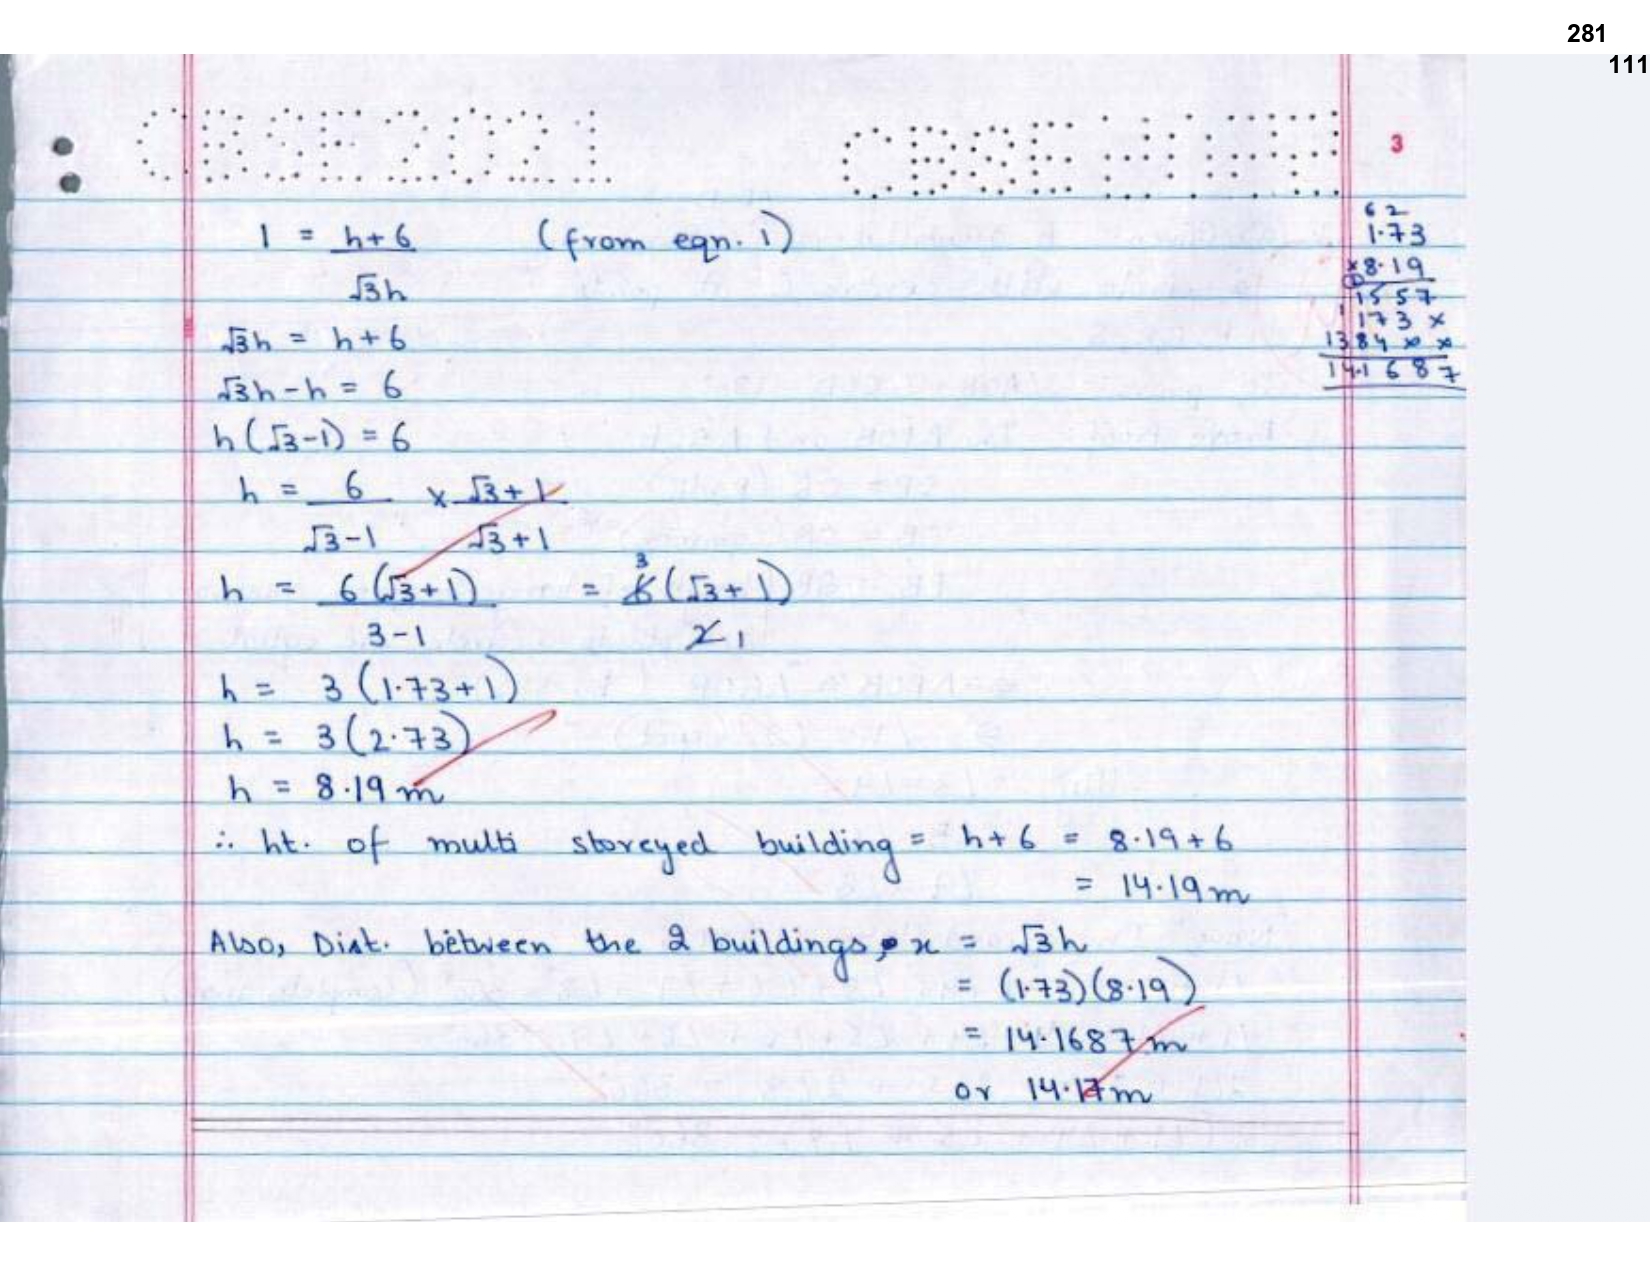 281
111
CBSE 2021
3
1 = h+6 (from eqn. 1)
√3h
√3h = h+6
√3h-h = 6
h(√3-1) = 6
h = 6 × √3+1
√3-1 √3+1
h = 6(√3+1) = 6 3 (√3+1)
3-1 2 1
h = 3(1.73+1)
h = 3(2.73)
h = 8.19 m
∴ ht. of multi storeyed building = h+6 = 8.19+6
= 14.19m
Also, Dist. between the 2 buildings, x = √3h
= (1.73)(8.19)
= 14.1687 m
or 14.17m
6 2
1.73
×8.19
1557
173×
1384××
14.1687